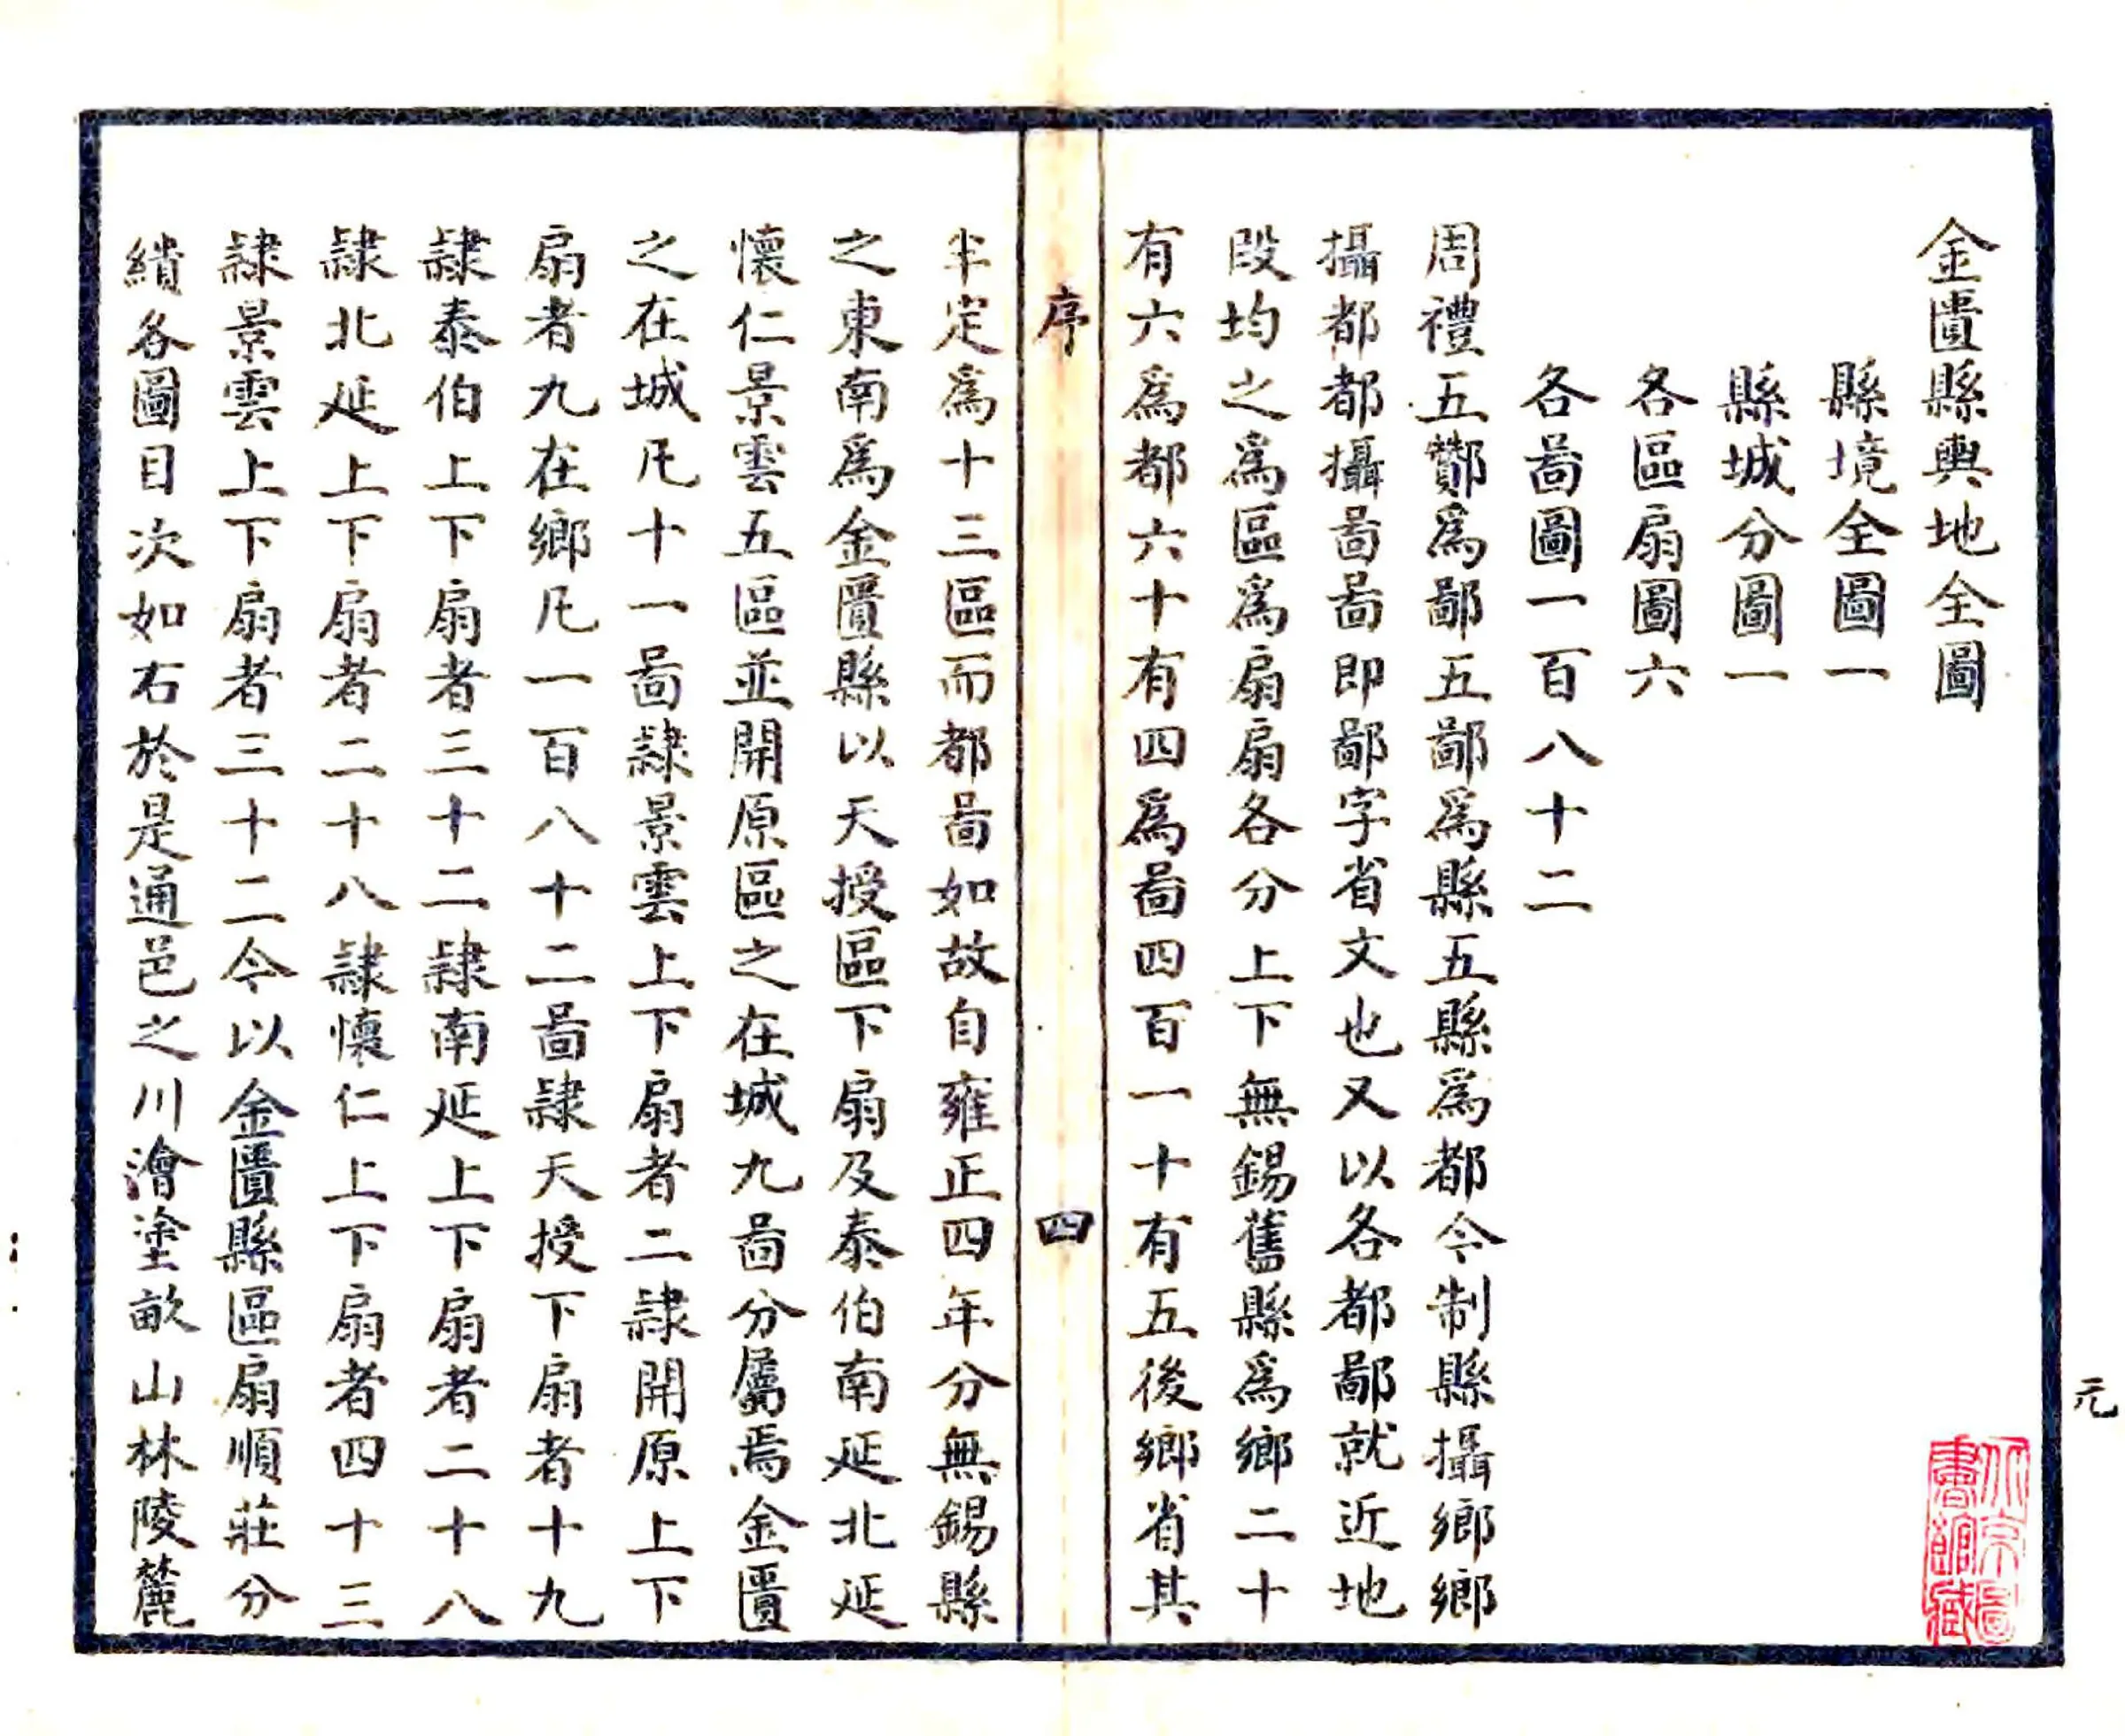 金匱縣輿地全圖
縣境全圖一
縣城分圖一
各區扇圖六
各啚圖一百八十二
周禮五酇爲鄙五鄙爲縣五縣爲都今制縣攝鄉鄉
攝都都攝啚啚即鄙字省文也又以各都鄙就近地
段均之爲區爲扇扇各分上下無錫舊縣爲鄉二十
有六爲都六十有四爲啚四百一十有五後鄉省其
半定爲十三區而都啚如故自雍正四年分無錫縣
之東南爲金匱縣以天授區下扇及泰伯南延北延
懷仁景雲五區並開原區之在城九啚分屬焉金匱
之在城凡十一啚隷景雲上下扇者二隷開原上下
扇者九在鄉凡一百八十二啚隷天授下扇者十九
隷泰伯上下扇者三十二隷南延上下扇者二十八
隷北延上下扇者二十八隷懷仁上下扇者四十三
隷景雲上下扇者三十二今以金匱縣區扇順莊分
繢各圖目次如右於是通邑之川澮塗畝山林陵麓
序
四
元
北京圖
書館藏